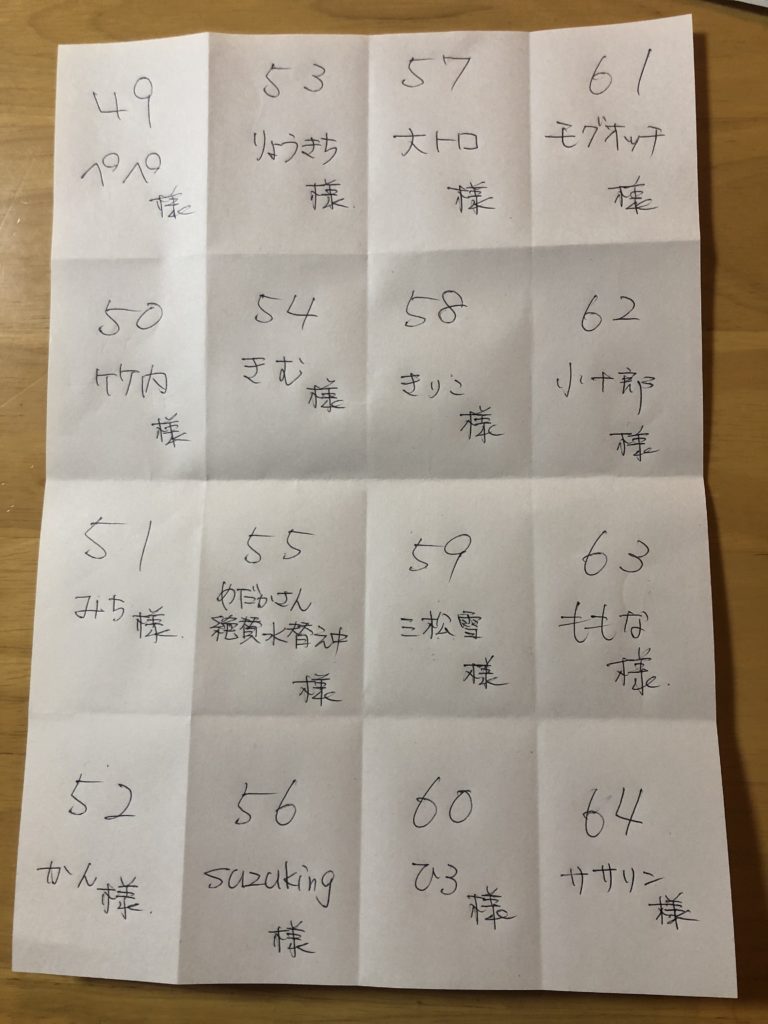 49
ペペ
様
50
ケケ内
様
51
みち様
52
かん様
53
りょうきち
様
54
きむ
様
55
めだかさん
絶賛水替え中
様
56
suzuking
様
57
大トロ
様
58
きりこ
様
59
三松雪
様
60
ひろ
様
61
モグオッチ
様
62
小十郎
様
63
ももな
様
64
ササリン
様